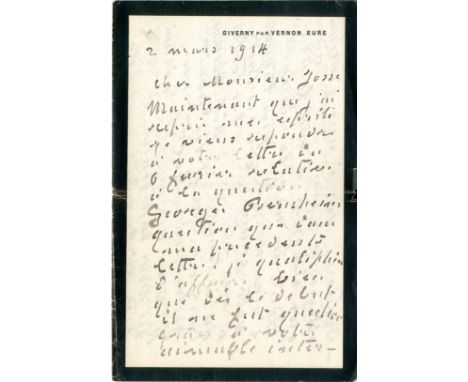 GIVERNY PAR VERNON. EURE
2 mars 1914
cher Monsieur Josse
Maintenant que j'ai
repris mes esprits
je viens repondre
à votre lettre du
6 février relative
à la question
Georges Bernheim
question que dans
ma précédente
lettre j'ai qualifiée
d'affaire, bien
que dès le début
il ne fut question
grâce à votre
aimable inter-